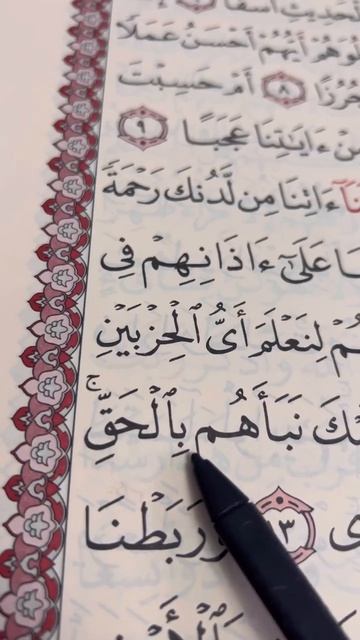 ٱلْحَدِيثِ أَسَفًا
أَيُّهُمْ أَحْسَنُ عَمَلًا
جُرُزًا ٨ أَمْ حَسِبْتَ
مِنْ ءَايَٰتِنَا عَجَبًا ٩
ءَاتِنَا مِن لَّدُنكَ رَحْمَةً
عَلَىٰٓ ءَاذَانِهِمْ فِي
لِنَعْلَمَ أَيُّ ٱلْحِزْبَيْنِ
نَبَأَهُم بِٱلْحَقِّ ۚ
١٣ وَرَبَطْنَا